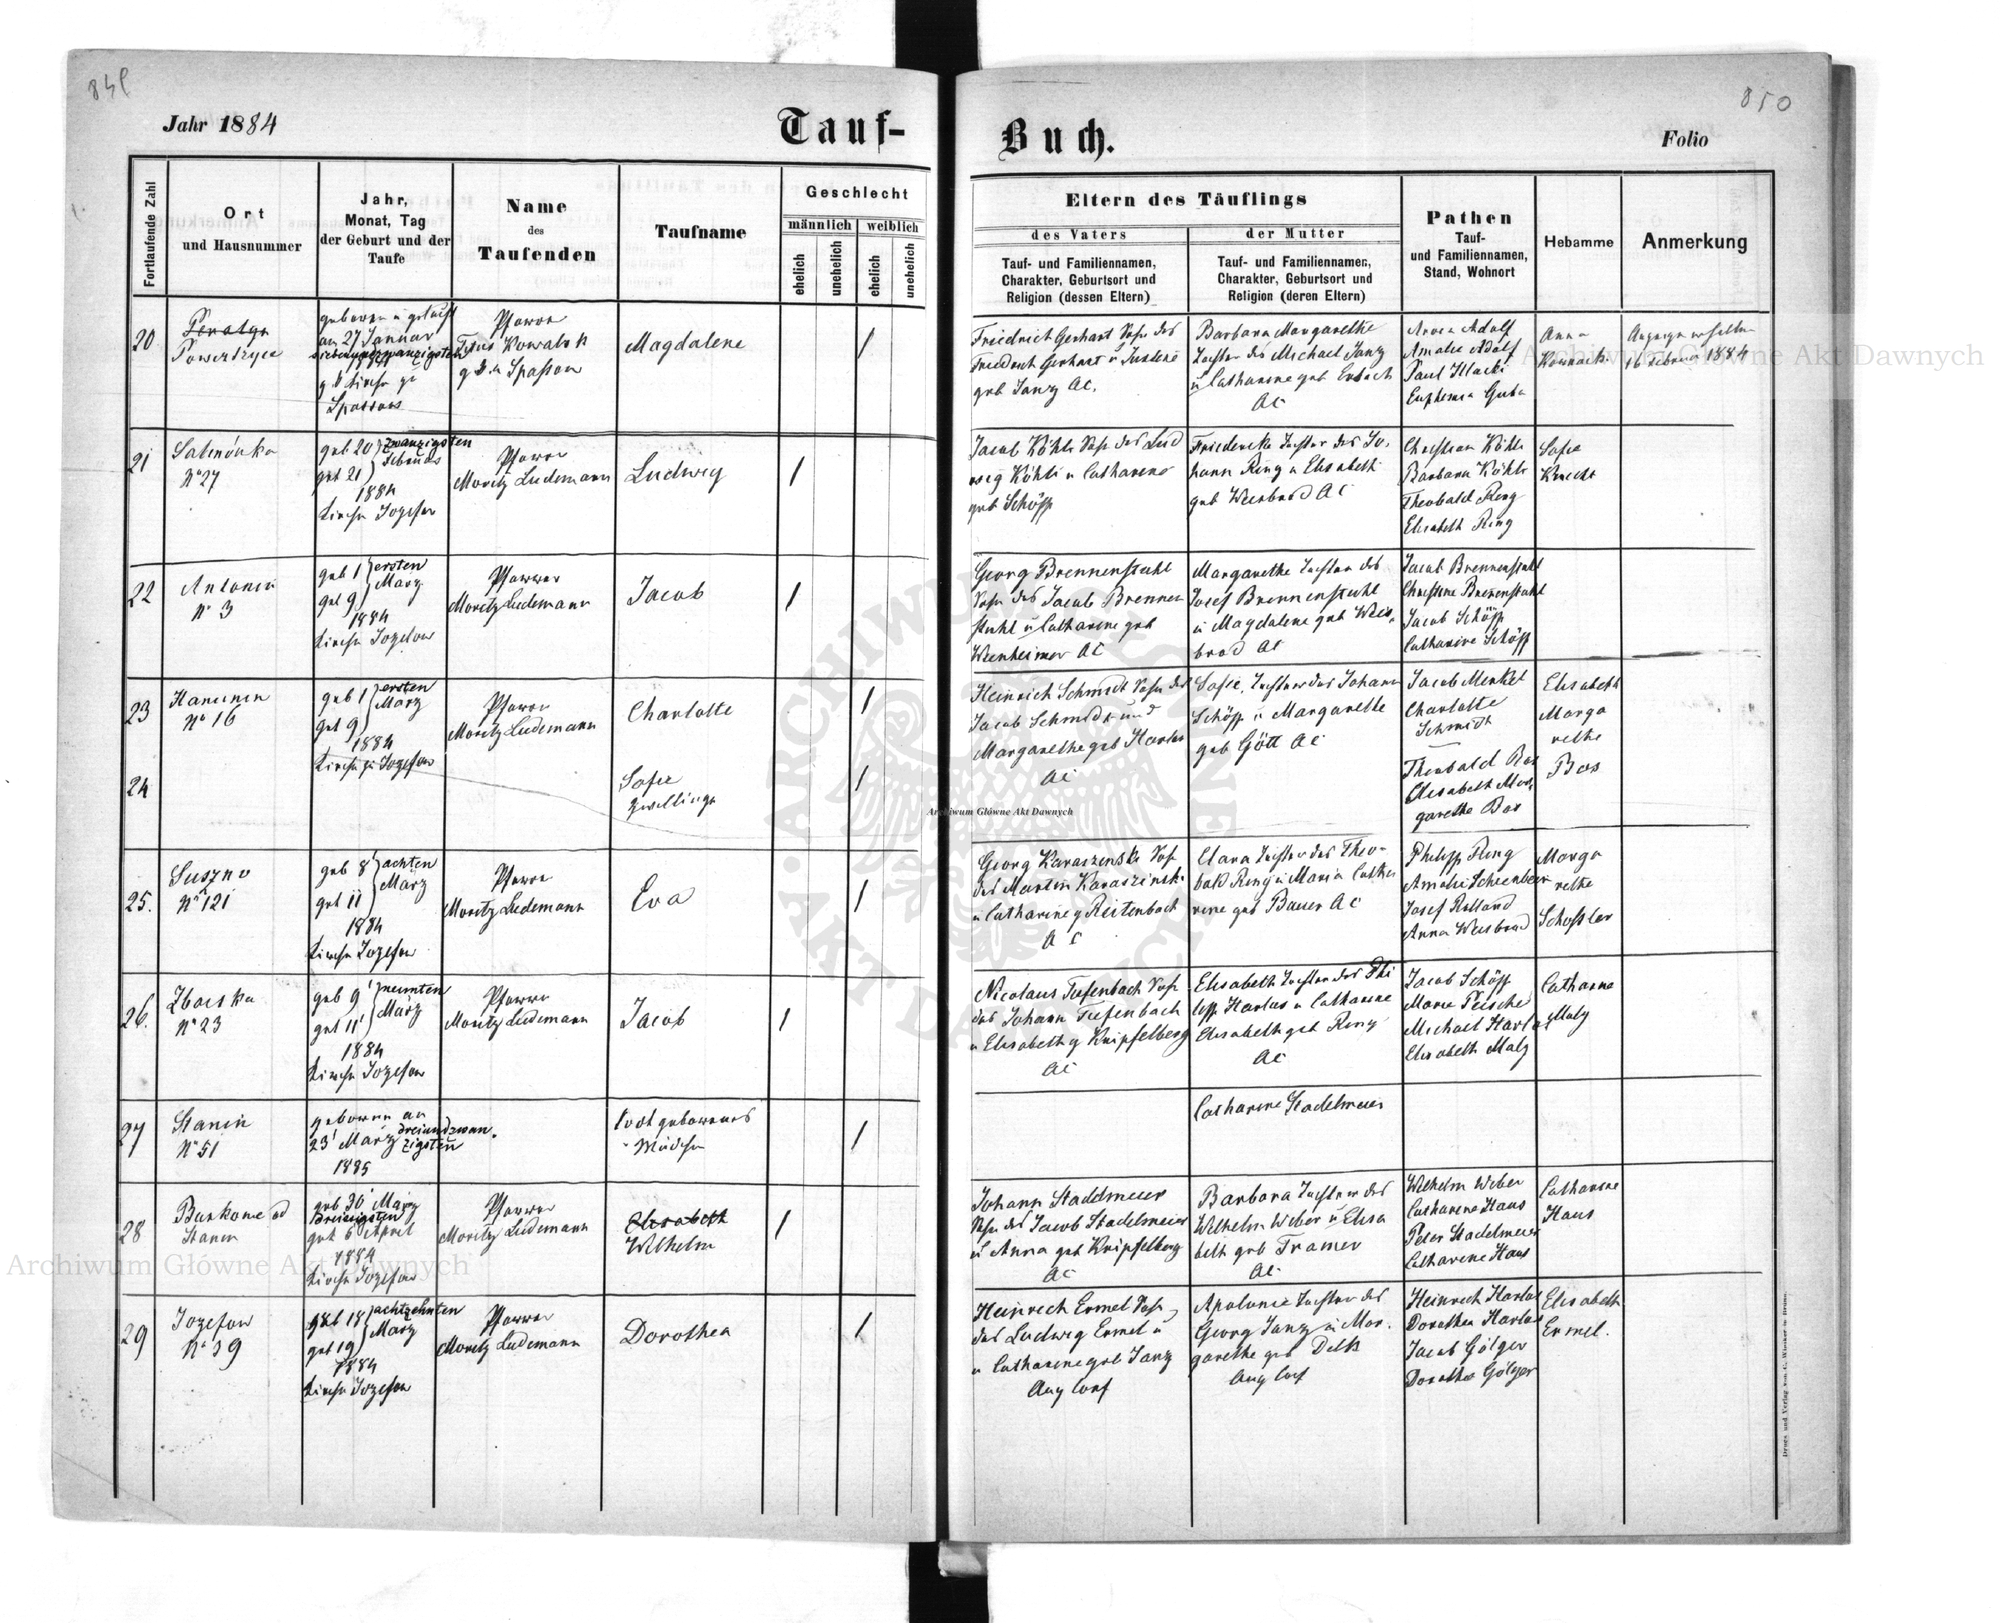 849
850
Jahr 1884
Tauf-
Buch.
Folio
Fortlaufende Zahl
Ort
und Hausnummer
Jahr,
Monat, Tag
der Geburt und der
Taufe
Name
des
Taufenden
Taufname
Geschlecht
männlich
weiblich
ehelich
unehelich
ehelich
unehelich
Eltern des Täuflings
des Vaters
Tauf- und Familiennamen,
Charakter, Geburtsort und
Religion (dessen Eltern)
der Mutter
Tauf- und Familiennamen,
Charakter, Geburtsort und
Religion (deren Eltern)
Pathen
Tauf-
und Familiennamen,
Stand, Wohnort
Hebamme
Anmerkung
20
geboren u getauft
am 27 Januar
siebenundzwanzigsten
Pfarrer
Kowalsk
Magdalene
/
Friedrich Gerhart Sohn des
Friedrich Gerhart u
geb Janz AC.
Barbara Margarethe
Tochter des Michael Janz
u Catharine geb
AC
Adolf
Amalie Adolf
Paul
Euphemia
Anna
1884
21
Sabinówka
No 27
geb 20 } zwanzigsten
get 21 } Februar
1884
Kirche Jozefow
Pfarrer
Moritz Ludemann
Ludwig
/
Jacob Köhle Sohn des Lud
wig Köhle u Catharine
geb Schöpp
Friedericke Tochter des Jo,
hann Ring u Elisabeth
geb Weisbrod AC
Christian Köhle
Barbara Köhle
Theobald Ring
Elisabeth Ring
Sofie
Knecht
22
Antonin
No 3
geb 1 } ersten
get 9 } März
1884
Kirche Jozefow
Pfarrer
Moritz Ludemann
Jacob
/
Georg Brennenstuhl
Sohn des Jacob Brennen
stuhl u Catharine geb
Weinheimer AC
Margarethe Tochter des
Josef Brennenstuhl
u Magdalene geb Weis,
brod AC
Jacob Brennenstuhl
Christine Brennenstuhl
Jacob Schöpp
Catharine Schöpp
23
Hanunin
No 16
geb 1 } ersten
get 9 } März
1884
Kirche zu Jozefow
Pfarrer
Moritz Ludemann
Charlotte
/
Heinrich Schmidt Sohn des
Jacob Schmidt und
Margarethe geb Harlas
AC
Sofie, Tochter des Johann
Schöpp u Margarethe
geb Gött AC
Jacob Merkel
Charlotte
Schmidt
Elisabeth
Marga
rethe
Bos
24
Sofie
Zwillinge
/
Theobald Bos
Elisabeth Mar,
garethe Bos
25.
Suszno
No 121
geb 8 } achten
get 11 } März
1884
Kirche Jozefow
Pfarrer
Moritz Ludemann
Eva
/
Georg Karaszinski Sohn
des Martin Karaszinski
u Catharine g Reitenbach
AC
Clara Tochter des Theo-
bald Ring u Maria Catha
rine geb Bauer AC
Philipp Ring
Amalie Scheinbein
Josef Rolland
Anna Weisbrod
Marga
rethe
Schossler
26.
Zboiska
No 23
geb 9 } neunten
get 11 } März
1884
Kirche Jozefow
Pfarrer
Moritz Ludemann
Jacob
/
Nicolaus Tiefenbach Sohn
des Johann Tiefenbach
u Elisabeth g Knipfelberg
AC
Elisabeth Tochter des Phi
lipp Harlas u Catharine
Elisabeth geb Ring
AC
Jacob Schöpp
Marie Peische
Michael Harlas
Elisabeth Maly
Catharine
Maly
27
Stanin
No 51
geboren am
23 März dreiundzwan,
zigsten
1885
Todt geborenes
Mädchen
/
Catharine Stadelmeier
28
Stanin
geb 30 März
Dreissigsten
get 6 April
1884
Kirche Jozefow
Pfarrer
Moritz Ludemann
Elisabeth
Wilhelm
/
Johann Stadelmeier
Sohn des Jacob Stadelmeier
u Anna geb Knipfelberg
AC
Barbara Tochter des
Wilhelm Weber u Elisa
beth geb Tramer
AC
Wilhelm Weber
Catharine Haus
Peter Stadelmeier
Catharine Haus
Catharine
Haus
29
Jozefow
No 39
geb 18 } achtzehnten
get 19 } März
1884
Kirche Jozefow
Pfarrer
Moritz Ludemann
Dorothea
/
Heinrich Ermel Sohn
des Ludwig Ermel u
u Catharine geb Janz
Aug Conf
Apolonie Tochter des
Georg Janz u Mar,
garethe geb Dilk
Aug Conf
Heinrich Harlas
Dorothea Harlas
Jacob Gölger
Dorothea Gölger
Elisabeth
Ermel.
Archiwum Główne Akt Dawnych
Archiwum Główne Akt Dawnych
Archiwum Główne Akt Dawnych
ARCHIWUM GŁÓWNE AKT DAWNYCH